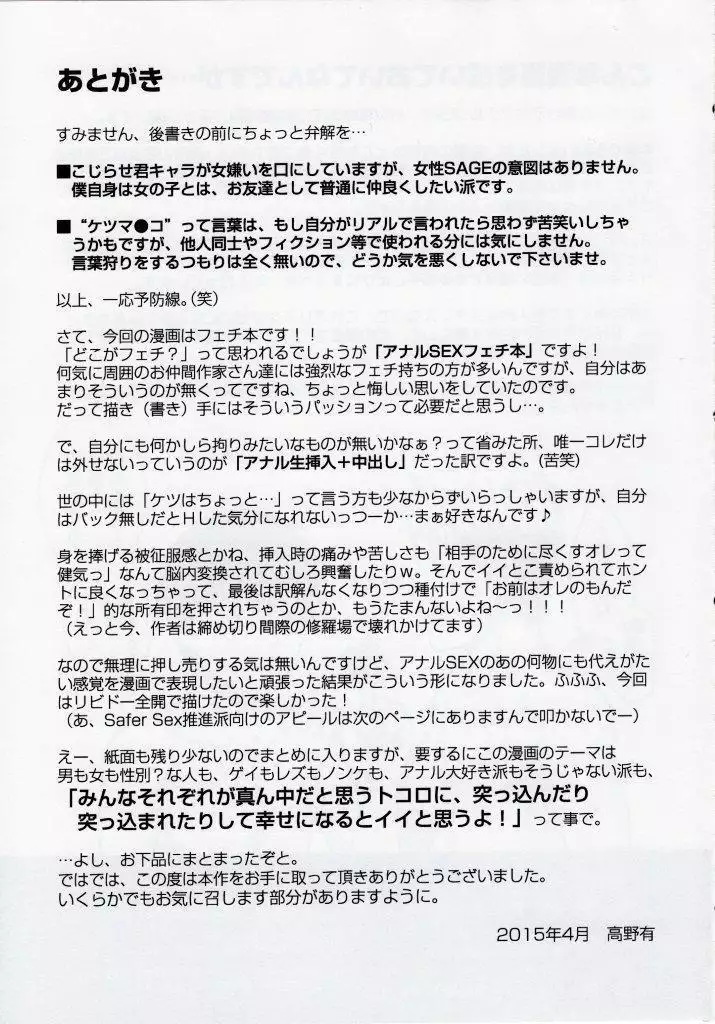 あとがき
すみません、後書きの前にちょっと弁解を…
■こじらせ君キャラが女嫌いを口にしていますが、女性SAGEの意図はありません。
僕自身は女の子とは、お友達として普通に仲良くしたい派です。
■“ケツマ●コ”って言葉は、もし自分がリアルで言われたら思わず苦笑いしちゃ
うかもですが、他人同士やフィクション等で使われる分には気にしません。
言葉狩りをするつもりは全く無いので、どうか気を悪くしないで下さいませ。
以上、一応予防線。(笑)
さて、今回の漫画はフェチ本です！！
「どこがフェチ？」って思われるでしょうが「アナルSEXフェチ本」ですよ！
何気に周囲のお仲間作家さん達には強烈なフェチ持ちの方が多いんですが、自分はあ
まりそういうのが無くってですね、ちょっと悔しい思いをしていたのです。
だって描き（書き）手にはそういうパッションって必要だと思うし…。
で、自分にも何かしら拘りみたいなものが無いかなぁ？って省みた所、唯一コレだけ
は外せないっていうのが「アナル生挿入＋中出し」だった訳ですよ。(苦笑)
世の中には「ケツはちょっと…」って言う方も少なからずいらっしゃいますが、自分
はバック無しだとＨした気分になれないっつーか…まぁ好きなんです♪
身を捧げる被征服感とかね、挿入時の痛みや苦しさも「相手のために尽くすオレって
健気っ」なんて脳内変換されてむしろ興奮したりｗ。そんでイイとこ責められてホン
トに良くなっちゃって、最後は訳解んなくなりつつ種付けで「お前はオレのもんだ
ぞ！」的な所有印を押されちゃうのとか、もうたまんないよね〜っ！！！
（えっと今、作者は締め切り間際の修羅場で壊れかけてます）
なので無理に押し売りする気は無いんですけど、アナルSEXのあの何物にも代えがた
い感覚を漫画で表現したいと頑張った結果がこういう形になりました。ふふふ、今回
はリビドー全開で描けたので楽しかった！
（あ、Safer Sex推進派向けのアピールは次のページにありますんで叩かないでー）
えー、紙面も残り少ないのでまとめに入りますが、要するにこの漫画のテーマは
男も女も性別？な人も、ゲイもレズもノンケも、アナル大好き派もそうじゃない派も、
「みんなそれぞれが真ん中だと思うトコロに、突っ込んだり
突っ込まれたりして幸せになるとイイと思うよ！」って事で。
…よし、お下品にまとまったぞと。
ではでは、この度は本作をお手に取って頂きありがとうございました。
いくらかでもお気に召します部分がありますように。
2015年4月　高野有